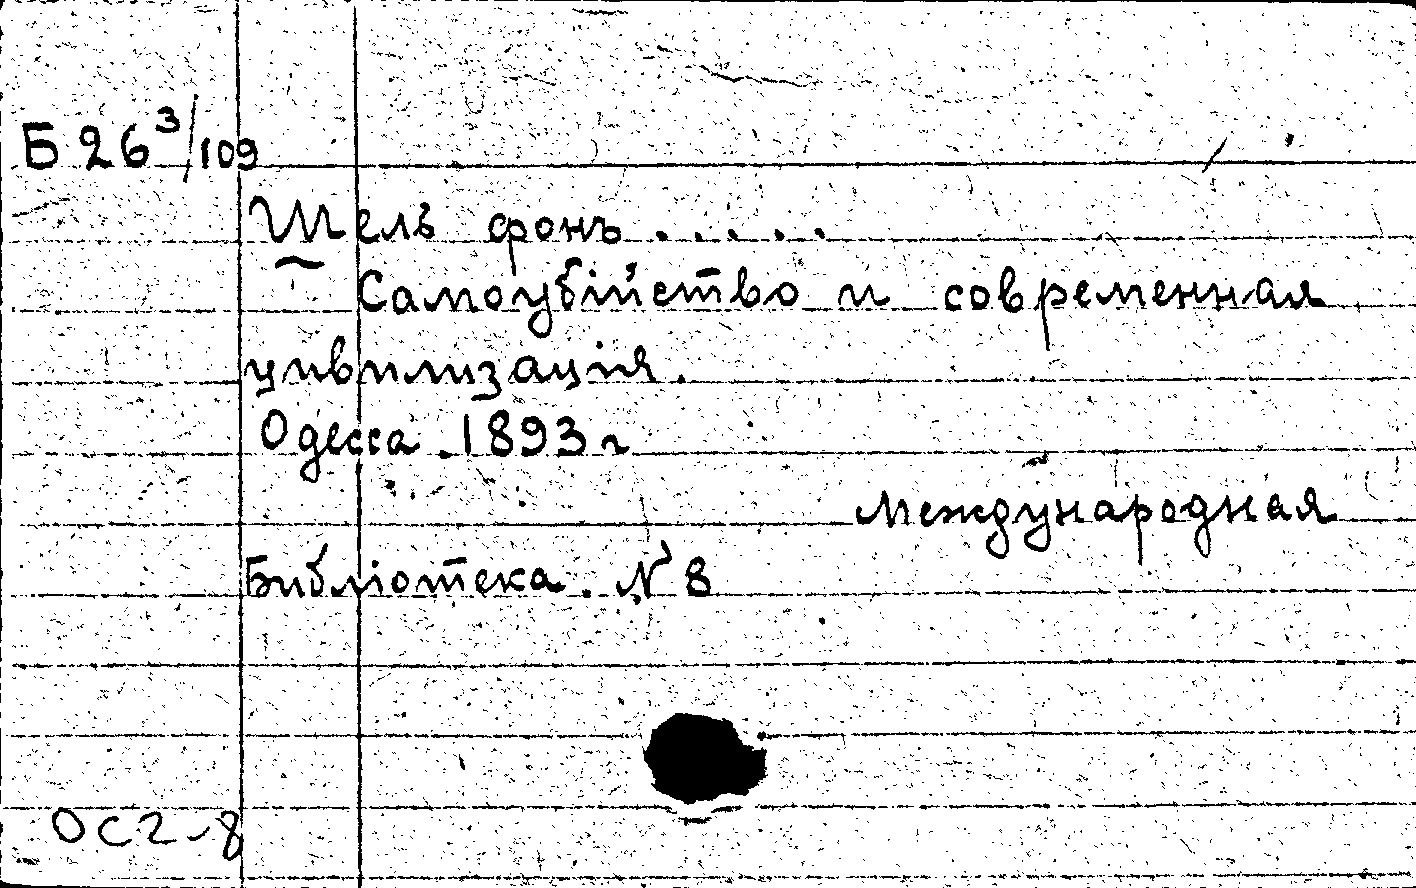 Б 26 3/109
Шель фонъ . . . . .
Самоубійство и современная
цивилизація.
Одесса. 1893 г
Международная
Библіотека. № 8
ОС2-8